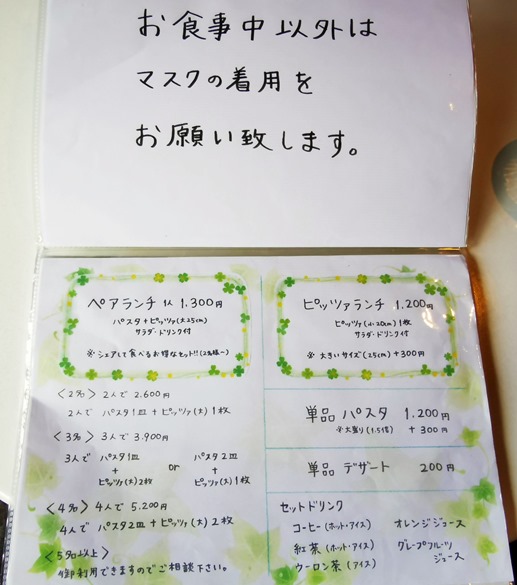 お食事中以外は
マスクの着用を
お願い致します。
ペアランチ 1人 1.300円
パスタ+ピッツァ(大25cm)
サラダ・ドリンク付
※シェアして食べるお得なセット!!(2名様〜)
<2名> 2人で 2.600円
2人で パスタ1皿+ピッツァ(大)1枚
<3名> 3人で 3.900円
3人で パスタ1皿 + ピッツァ(大)2枚 or パスタ2皿 + ピッツァ(大)1枚
<4名> 4人で 5.200円
4人で パスタ2皿+ピッツァ(大)2枚
<5名以上>
御利用できますのでご相談下さい。
ピッツァランチ 1.200円
ピッツァ(小・20cm)1枚
サラダ・ドリンク付
※大きいサイズ(25cm)+300円
単品 パスタ 1.200円
※大盛り(1.5倍) +300円
単品 デザート 200円
セットドリンク
コーヒー(ホット・アイス) オレンジジュース
紅茶(ホット・アイス) グレープフルーツ
ジュース
ウーロン茶(アイス)